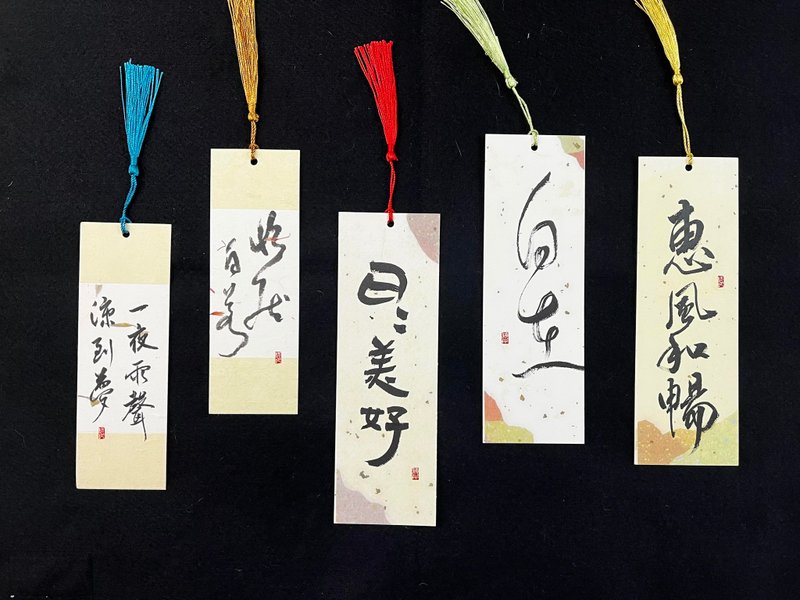 一夜雨聲
涼到夢
自若
日〻美好
自在
惠風和暢